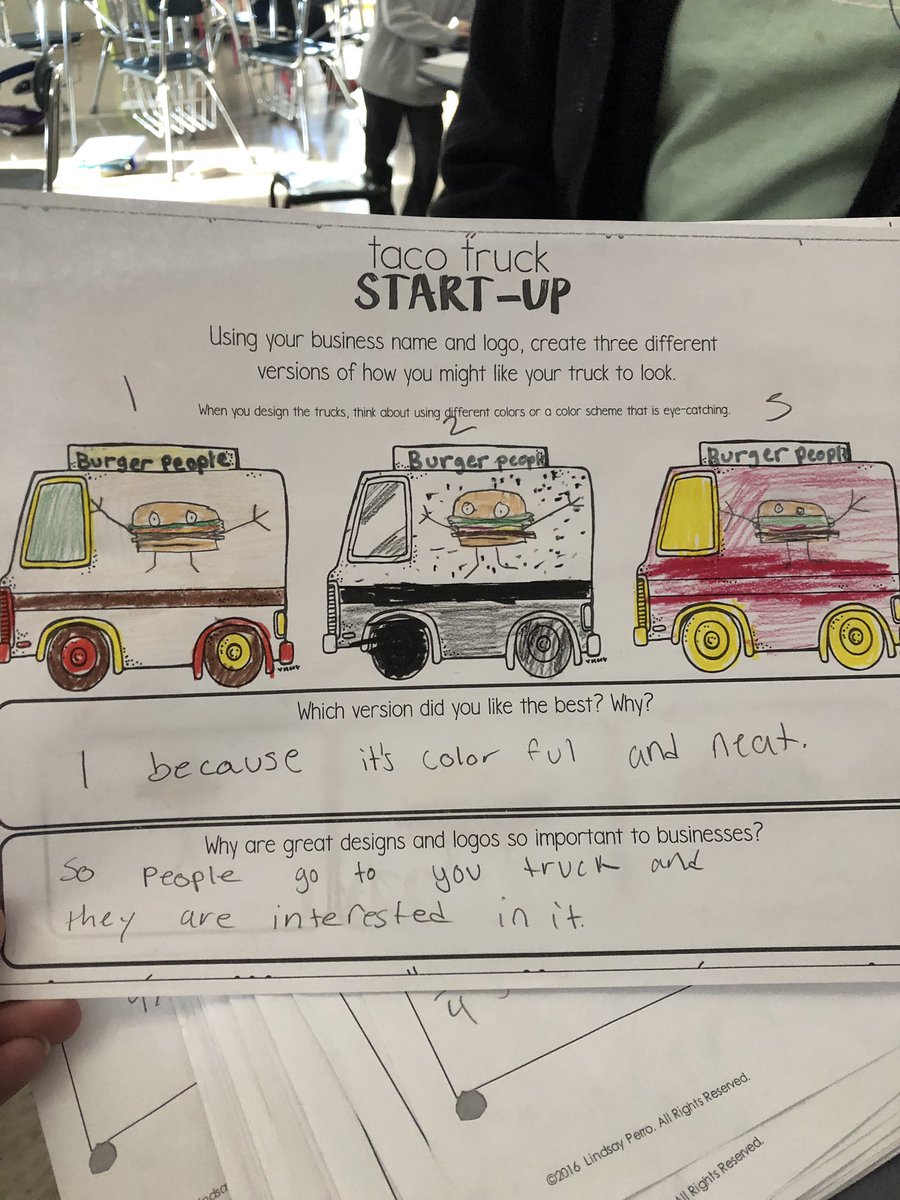 taco truck
START-UP
Using your business name and logo, create three different
versions of how you might like your truck to look.
When you design the trucks, think about using different colors or a color scheme that is eye-catching.
1
2
3
Burger People
Burger people
Burger people
Which version did you like the best? Why?
1 because it's color ful and neat.
Why are great designs and logos so important to businesses?
So people go to you truck and
they are interested in it.
©2016 Lindsay Perro. All Rights Reserved.
All Rights Reserved.